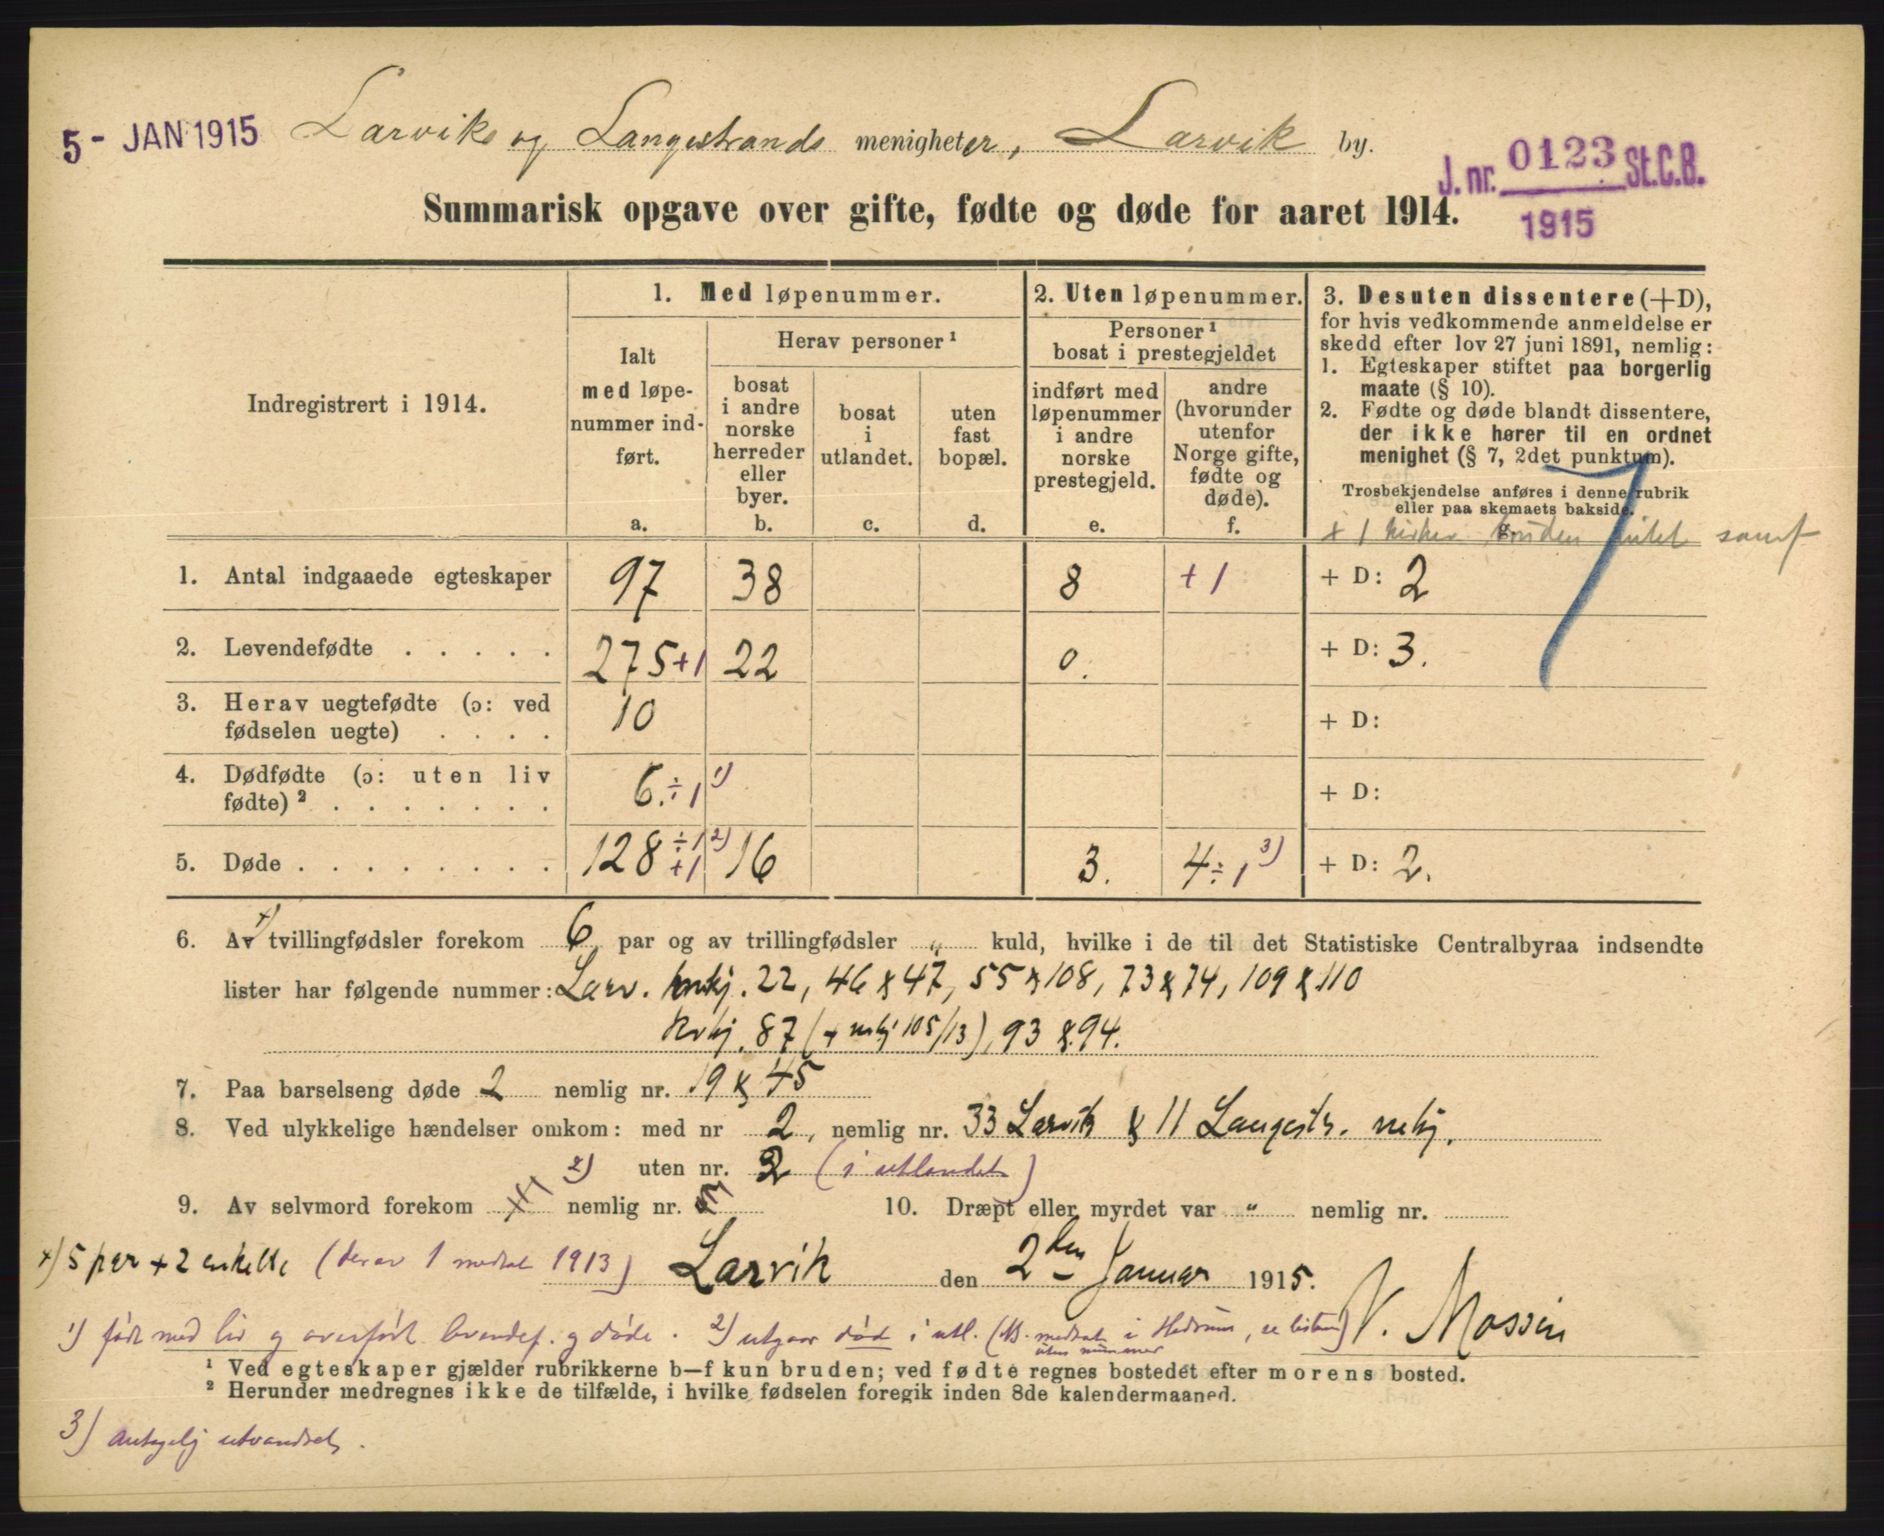 5 - JAN 1915
Larviks og Langestrands menigheter, Larvik by.
J. nr. 0123 St.C.B.
1915
Summarisk opgave over gifte, fødte og døde for aaret 1914.
Indregistrert i 1914.
1. Med løpenummer.
Ialt
med løpe-
nummer ind-
ført.
a.
Herav personer ¹
bosat
i andre
norske
herreder
eller
byer.
b.
bosat
i
utlandet.
c.
uten
fast
bopæl.
d.
2. Uten løpenummer.
Personer ¹
bosat i prestegjeldet
indført med
løpenummer
i andre
norske
prestegjeld.
e.
andre
(hvorunder
utenfor
Norge gifte,
fødte og
døde).
f.
3. Desuten dissentere (+D),
for hvis vedkommende anmeldelse er
skedd efter lov 27 juni 1891, nemlig:
1. Egteskaper stiftet paa borgerlig
maate (§ 10).
2. Fødte og døde blandt dissentere,
der ikke hører til en ordnet
menighet (§ 7, 2det punktum).
Trosbekjendelse anføres i denne rubrik
eller paa skemaets bakside.
g.
+ 1 bruden samf
7
1. Antal indgaaede egteskaper 97 38 8 +1 + D: 2
2. Levendefødte . . . . . 275+1 22 0. + D: 3.
3. Herav uegtefødte (ɔ: ved
fødselen uegte) . . . . 10 + D:
4. Dødfødte (ɔ: uten liv
fødte) ² . . . . . . . 6.÷1 ¹) + D:
5. Døde . . . . . . . . 128 ÷1 +1 ²) 16 3. 4÷1 ³) + D: 2.
6. Av +) tvillingfødsler forekom 6 par og av trillingfødsler „ kuld, hvilke i de til det Statistiske Centralbyraa indsendte
lister har følgende nummer: Larv. mkj. 22, 46 & 47, 55 & 108, 73 & 74, 109 & 110
Kvkj. 87 (+ mkj 105/13), 93 & 94.
7. Paa barselseng døde 2 nemlig nr. 19 & 45
8. Ved ulykkelige hændelser omkom: med nr 2, nemlig nr. 33 Larvik & 11 Langestr. mkj.
2) uten nr. 2 (i utlandet)
9. Av selvmord forekom nemlig nr. 10. Dræpt eller myrdet var „ nemlig nr.
+) 5 par + 2 enkelte (derav 1 medtat 1913) Larvik den 2den Januar 1915.
1) født med liv og overført levendef. og døde. 2) utgaar død i utl. (NB. medtat i Hedrum, se listen) V. Mossin
uten nummer
¹ Ved egteskaper gjælder rubrikkerne b—f kun bruden; ved fødte regnes bostedet efter morens bosted.
² Herunder medregnes ikke de tilfælde, i hvilke fødselen foregik inden 8de kalendermaaned.
3) antagelig utvandret.